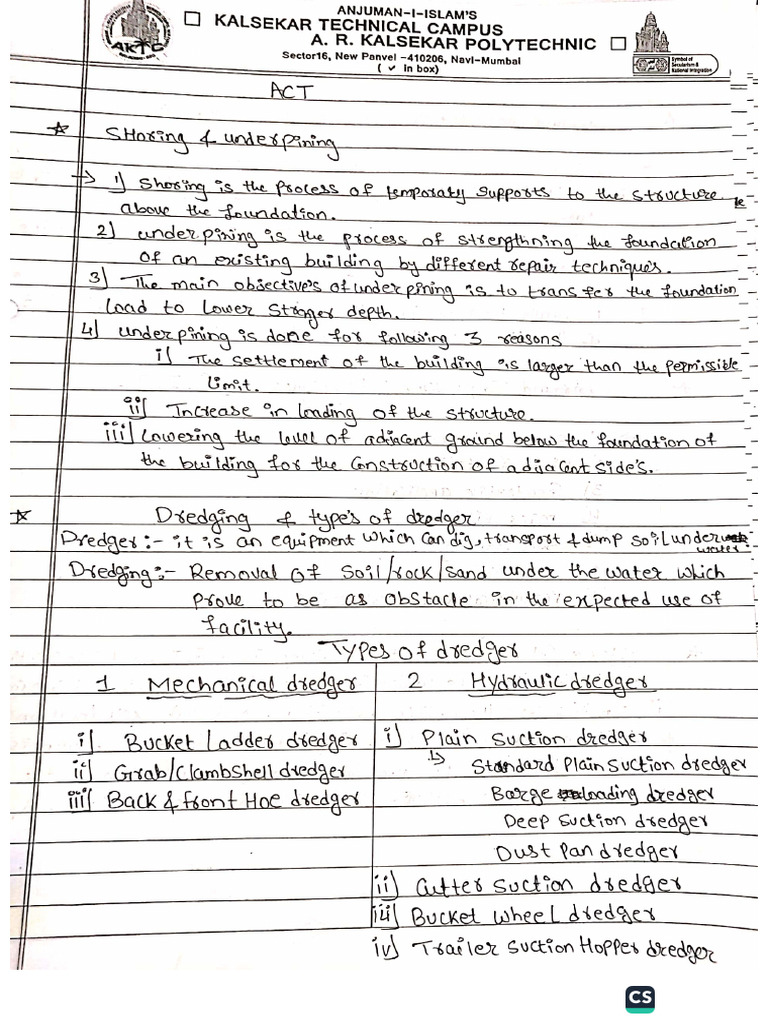 ANJUMAN-I-ISLAM'S
KALSEKAR TECHNICAL CAMPUS
A. R. KALSEKAR POLYTECHNIC
Sector16, New Panvel -410206, Navi-Mumbai
( ✓ in box)
AKTC
Symbol of
Secularism &
National Integration
ACT
☆ SHoring & underpining
→ 1) Shoring is the process of temporaty supports to the structure
above the foundation.
2) underpining is the process of strengthning the foundation
of an existing building by different repair technique's.
3) The main objective's of underpining is to transfer the foundation
load to lower stroger depth.
4) underpining is done for following 3 reasons
i) The settlement of the building is larger than the permissible
limit.
ii) Increase in loading of the structure.
iii) Lowering the level of adjacent ground below the foundation of
the building for the construction of adjacent side's.
☆ Dredging & type's of dredger
Dredger:- it is an equipment which can dig, transport & dump soil under
water.
Dredging:- Removal of soil/rock/sand under the water which
prove to be as obstacle in the expected use of
facility.
Types of dredger
1 Mechanical dredger 2 Hydraulic dredger
i) Bucket Ladder dredger i) Plain suction dredger
ii) Grab/Clambshell dredger ↳ Standard Plain suction dredger
iii) Back & front Hoe dredger Barge loading dredger
Deep suction dredger
Dust Pan dredger
ii) Cutter suction dredger
iii) Bucket wheel dredger
iv) Trailer suction Hopper dredger
CS